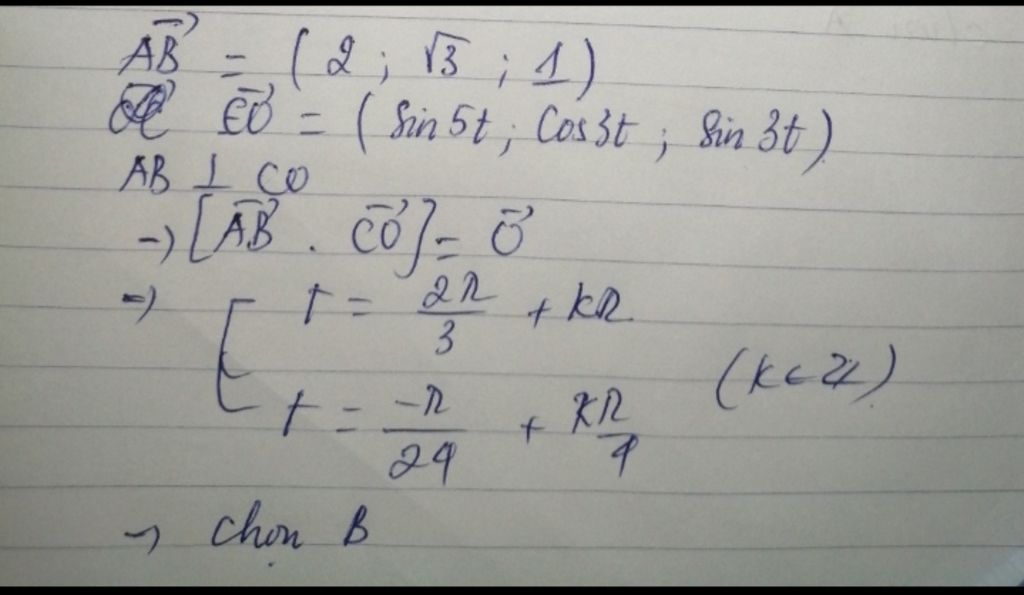 AB→ = ( 2 ; √3 ; 1 )
CO→ = ( Sin 5t ; Cos 3t ; Sin 3t )
AB ⊥ CO
→ [ AB→ . CO→ ] = O→
⇒ [ t = 2π/3 + kπ
(k ∈ Z)
t = -π/24 + kπ/4
→ Chọn B